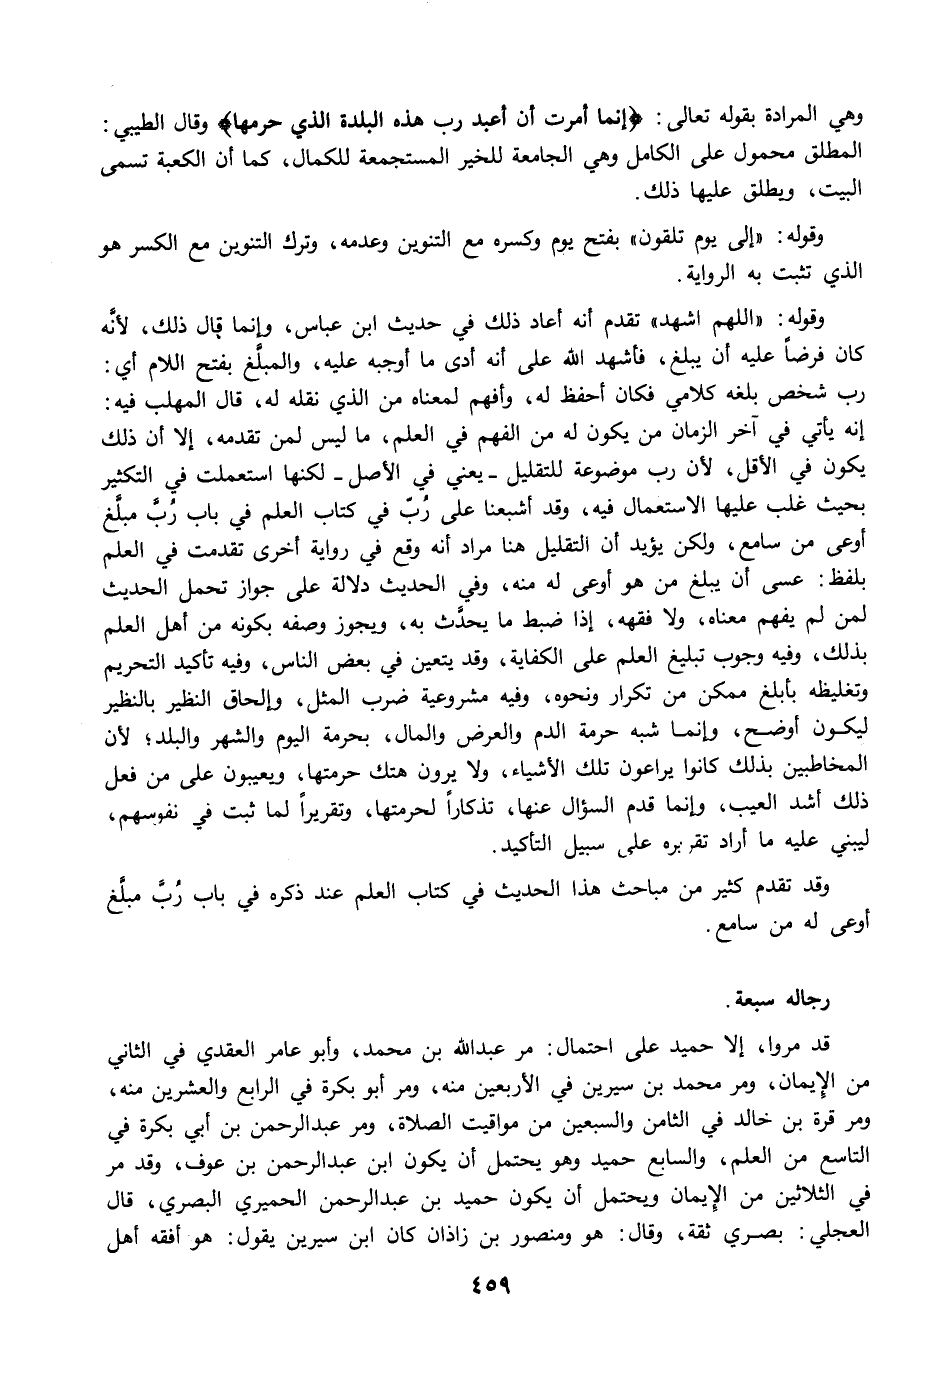 وهي المرادة بقوله تعالى: ﴿إنما أمرت أن أعبد رب هذه البلدة الذي حرمها﴾ وقال الطيبي:
المطلق محمول على الكامل وهي الجامعة للخير المستجمعة للكمال، كما أن الكعبة تسمى
البيت، ويطلق عليها ذلك.
وقوله: «إلى يوم تلقون» بفتح يوم وكسره مع التنوين وعدمه، وترك التنوين مع الكسر هو
الذي تثبت به الرواية.
وقوله: «اللهم اشهد» تقدم أنه أعاد ذلك في حديث ابن عباس، وإنما قال ذلك، لأنَّه
كان فرضاً عليه أن يبلغ، فأشهد الله على أنه أدى ما أوجبه عليه، والمبلَّغ بفتح اللام أي:
رب شخص بلغه كلامي فكان أحفظ له، وأفهم لمعناه من الذي نقله له، قال المهلب فيه:
إنه يأتي في آخر الزمان من يكون له من الفهم في العلم، ما ليس لمن تقدمه، إلا أن ذلك
يكون في الأقل، لأن رب موضوعة للتقليل ـ يعني في الأصل ـ لكنها استعملت في التكثير
بحيث غلب عليها الاستعمال فيه، وقد أشبعنا على رُبّ في كتاب العلم في باب رُبَّ مبلَّغ
أوعى من سامع، ولكن يؤيد أن التقليل هنا مراد أنه وقع في رواية أخرى تقدمت في العلم
بلفظ: عسى أن يبلغ من هو أوعى له منه، وفي الحديث دلالة على جواز تحمل الحديث
لمن لم يفهم معناه، ولا فقهه، إذا ضبط ما يحدَّث به، ويجوز وصفه بكونه من أهل العلم
بذلك، وفيه وجوب تبليغ العلم على الكفاية، وقد يتعين في بعض الناس، وفيه تأكيد التحريم
وتغليظه بأبلغ ممكن من تكرار ونحوه، وفيه مشروعية ضرب المثل، وإلحاق النظير بالنظير
ليكون أوضح، وإنما شبه حرمة الدم والعرض والمال، بحرمة اليوم والشهر والبلد؛ لأن
المخاطبين بذلك كانوا يراعون تلك الأشياء، ولا يرون هتك حرمتها، ويعيبون على من فعل
ذلك أشد العيب، وإنما قدم السؤال عنها، تذكاراً لحرمتها، وتقريراً لما ثبت في نفوسهم،
ليبني عليه ما أراد تقريره على سبيل التأكيد.
وقد تقدم كثير من مباحث هذا الحديث في كتاب العلم عند ذكره في باب رُبَّ مبلَّغ
أوعى له من سامع.
رجاله سبعة.
قد مروا، إلا حميد على احتمال: مر عبدالله بن محمد، وأبو عامر العقدي في الثاني
من الإيمان، ومر محمد بن سيرين في الأربعين منه، ومر أبو بكرة في الرابع والعشرين منه،
ومر قرة بن خالد في الثامن والسبعين من مواقيت الصلاة، ومر عبدالرحمن بن أبي بكرة في
التاسع من العلم، والسابع حميد وهو يحتمل أن يكون ابن عبدالرحمن بن عوف، وقد مر
في الثلاثين من الإيمان ويحتمل أن يكون حميد بن عبدالرحمن الحميري البصري، قال
العجلي: بصري ثقة، وقال: هو ومنصور بن زاذان كان ابن سيرين يقول: هو أفقه أهل
٤٥٩